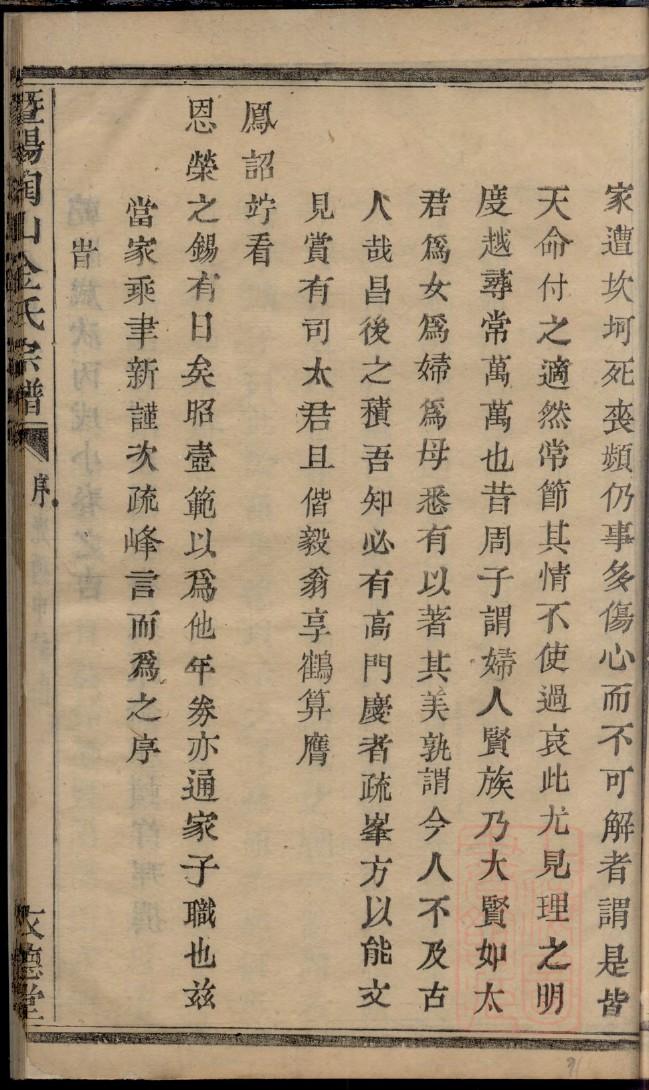 家遭坎坷死喪頻仍事多傷心而不可解者謂是皆
天命付之適然常節其情不使過哀此尤見理之明
度越尋常萬萬也昔周子謂婦人賢族乃大賢如太
君爲女爲婦爲母悉有以著其美孰謂今人不及古
人哉昌後之積吾知必有高門慶者疏峯方以能文
見賞有司太君且偕毅翁享鶴算膺
鳳詔竚看
恩榮之錫有日矣昭壼範以爲他年券亦通家子職也兹
當家乘聿新謹次疏峰言而爲之序
旹
暨陽陶山金氏宗譜
序
文德堂